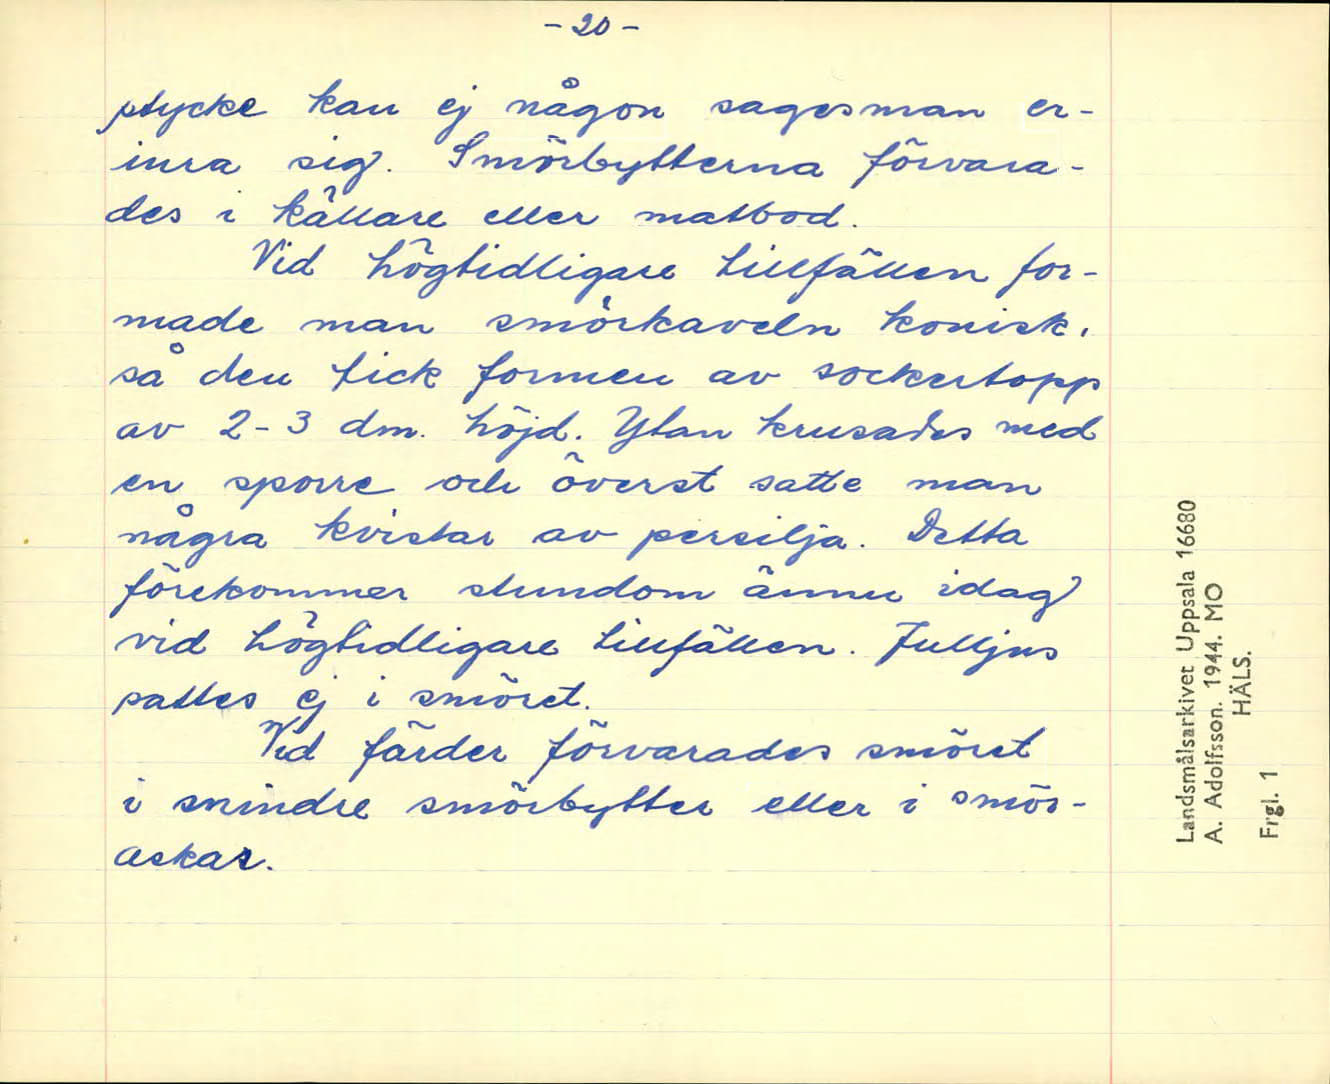 - 20 -
stycke kan ej någon sagesman er-
inra sig. Smörbytterna förvara-
des i källare eller matbod.
Vid högtidligare tillfällen for-
made man smörkaveln konisk,
så den fick formen av sockertopp
av 2-3 dm. höjd. Ytan krusades med
en sporre och överst satte man
några kvistar av persilja. Detta
förekommer stundom ännu idag
vid högtidligare tillfällen. Julljus
sattes ej i smöret.
Vid färder förvarades smöret
i mindre smörbyttor eller i smör-
askar.
Landsmålsarkivet Uppsala 16680
A. Adolfsson. 1944. MO
HÄLS.
Frgl. 1